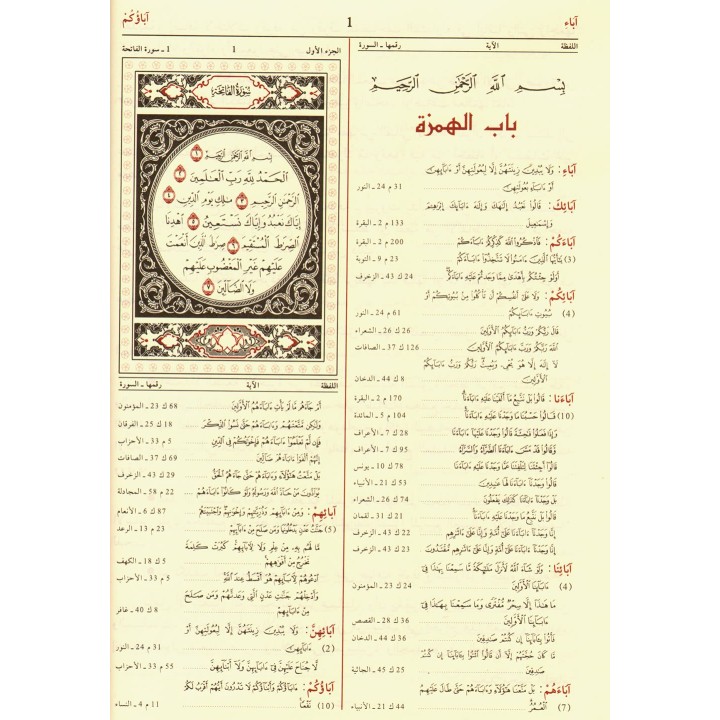 آباءِ
1
آباؤُكُمْ
اللفظة الآية رقمها ـ السورة
بِسْمِ ٱللَّهِ ٱلرَّحْمَٰنِ ٱلرَّحِيمِ
باب الهمزة
آباءِ : وَلَا يُبْدِينَ زِينَتَهُنَّ إِلَّا لِبُعُولَتِهِنَّ أَوْ ءَابَآئِهِنَّ
أَوْ ءَابَآءِ بُعُولَتِهِنَّ 31 م 24 ـ النور
آبَائِكَ : قَالُوا۟ نَعْبُدُ إِلَٰهَكَ وَإِلَٰهَ ءَابَآئِكَ إِبْرَٰهِـۧمَ
وَإِسْمَٰعِيلَ 133 م 2 ـ البقرة
آبَاءَكُمْ : فَٱذْكُرُوا۟ ٱللَّهَ كَذِكْرِكُمْ ءَابَآءَكُمْ 200 م 2 ـ البقرة
(3) يَٰٓأَيُّهَا ٱلَّذِينَ ءَامَنُوا۟ لَا تَتَّخِذُوٓا۟ ءَابَآءَكُمْ 23 م 9 ـ التوبة
أَوَلَوْ جِئْتُكُم بِأَهْدَىٰ مِمَّا وَجَدتُّمْ عَلَيْهِ ءَابَآءَكُمْ 24 ك 43 ـ الزخرف
آبَائِكُمْ : وَلَا عَلَىٰٓ أَنفُسِكُمْ أَن تَأْكُلُوا۟ مِنۢ بُيُوتِكُمْ أَوْ
(4) بُيُوتِ ءَابَآئِكُمْ 61 م 24 ـ النور
قَالَ رَبُّكُمْ وَرَبُّ ءَابَآئِكُمُ ٱلْأَوَّلِينَ 26 ك 26 ـ الشعراء
ٱللَّهَ رَبَّكُمْ وَرَبَّ ءَابَآئِكُمُ ٱلْأَوَّلِينَ 126 ك 37 ـ الصافات
لَآ إِلَٰهَ إِلَّا هُوَ يُحْىِۦ وَيُمِيتُ رَبُّكُمْ وَرَبُّ ءَابَآئِكُمُ
ٱلْأَوَّلِينَ 8 ك 44 ـ الدخان
آبَاءَنَا : قَالُوا۟ بَلْ نَتَّبِعُ مَآ أَلْفَيْنَا عَلَيْهِ ءَابَآءَنَآ 170 م 2 ـ البقرة
(10) قَالُوا۟ حَسْبُنَا مَا وَجَدْنَا عَلَيْهِ ءَابَآءَنَآ 104 م 5 ـ المائدة
وَإِذَا فَعَلُوا۟ فَٰحِشَةً قَالُوا۟ وَجَدْنَا عَلَيْهَآ ءَابَآءَنَا 28 ك 7 ـ الأعراف
وَّقَالُوا۟ قَدْ مَسَّ ءَابَآءَنَا ٱلضَّرَّآءُ وَٱلسَّرَّآءُ 95 ك 7 ـ الأعراف
قَالُوٓا۟ أَجِئْتَنَا لِتَلْفِتَنَا عَمَّا وَجَدْنَا عَلَيْهِ ءَابَآءَنَا 78 ك 10 ـ يونس
قَالُوا۟ وَجَدْنَآ ءَابَآءَنَا لَهَا عَٰبِدِينَ 53 ك 21 ـ الأنبياء
قَالُوا۟ بَلْ وَجَدْنَآ ءَابَآءَنَا كَذَٰلِكَ يَفْعَلُونَ 74 ك 26 ـ الشعراء
قَالُوا۟ بَلْ نَتَّبِعُ مَا وَجَدْنَا عَلَيْهِ ءَابَآءَنَآ 21 ك 31 ـ لقمان
إِنَّا وَجَدْنَآ ءَابَآءَنَا عَلَىٰٓ أُمَّةٍ وَإِنَّا عَلَىٰٓ ءَاثَٰرِهِم 22 ك 43 ـ الزخرف
إِنَّا وَجَدْنَآ ءَابَآءَنَا عَلَىٰٓ أُمَّةٍ وَإِنَّا عَلَىٰٓ ءَاثَٰرِهِم مُّقْتَدُونَ 23 ك 43 ـ الزخرف
آبَائِنَا : وَلَوْ شَآءَ ٱللَّهُ لَأَنزَلَ مَلَٰٓئِكَةً مَّا سَمِعْنَا بِهَٰذَا فِىٓ
(4) ءَابَآئِنَا ٱلْأَوَّلِينَ 24 ك 23 ـ المؤمنون
مَا هَٰذَآ إِلَّا سِحْرٌ مُّفْتَرًى وَمَا سَمِعْنَا بِهَٰذَا فِىٓ
ءَابَآئِنَا ٱلْأَوَّلِينَ 36 ك 28 ـ القصص
فَأْتُوا۟ بِـَٔابَآئِنَآ إِن كُنتُمْ صَٰدِقِينَ 36 ك 44 ـ الدخان
مَّا كَانَ حُجَّتَهُمْ إِلَّآ أَن قَالُوا۟ ٱئْتُوا۟ بِـَٔابَآئِنَآ إِن كُنتُمْ
صَٰدِقِينَ 25 ك 45 ـ الجاثية
آبَاءَهُمْ : بَلْ مَتَّعْنَا هَٰٓؤُلَآءِ وَءَابَآءَهُمْ حَتَّىٰ طَالَ عَلَيْهِمُ
(7) ٱلْعُمُرُ 44 ك 21 ـ الأنبياء
الجزء الأول 1 1 ـ سورة الفاتحة
سُورَةُ الفَاتِحَةِ
بِسْمِ ٱللَّهِ ٱلرَّحْمَٰنِ ٱلرَّحِيمِ ١
ٱلْحَمْدُ لِلَّهِ رَبِّ ٱلْعَٰلَمِينَ ٢
ٱلرَّحْمَٰنِ ٱلرَّحِيمِ ٣ مَٰلِكِ يَوْمِ ٱلدِّينِ ٤
إِيَّاكَ نَعْبُدُ وَإِيَّاكَ نَسْتَعِينُ ٥ ٱهْدِنَا
ٱلصِّرَٰطَ ٱلْمُسْتَقِيمَ ٦ صِرَٰطَ ٱلَّذِينَ أَنْعَمْتَ
عَلَيْهِمْ غَيْرِ ٱلْمَغْضُوبِ عَلَيْهِمْ
وَلَا ٱلضَّآلِّينَ ٧
اللفظة الآية رقمها ـ السورة
أَمْ جَآءَهُم مَّا لَمْ يَأْتِ ءَابَآءَهُمُ ٱلْأَوَّلِينَ 68 ك 23 ـ المؤمنون
وَلَٰكِن مَّتَّعْتَهُمْ وَءَابَآءَهُمْ حَتَّىٰ نَسُوا۟ ٱلذِّكْرَ 18 ك 25 ـ الفرقان
فَإِن لَّمْ تَعْلَمُوٓا۟ ءَابَآءَهُمْ فَإِخْوَٰنُكُمْ فِى ٱلدِّينِ 5 م 33 ـ الأحزاب
إِنَّهُمْ أَلْفَوْا۟ ءَابَآءَهُمْ ضَآلِّينَ 69 ك 37 ـ الصافات
بَلْ مَتَّعْتُ هَٰٓؤُلَآءِ وَءَابَآءَهُمْ حَتَّىٰ جَآءَهُمُ ٱلْحَقُّ 29 ك 43 ـ الزخرف
يُوَآدُّونَ مَنْ حَآدَّ ٱللَّهَ وَرَسُولَهُۥ وَلَوْ كَانُوٓا۟ ءَابَآءَهُمْ 22 م 58 ـ المجادلة
آبَائِهِمْ : وَمِنْ ءَابَآئِهِمْ وَذُرِّيَّٰتِهِمْ وَإِخْوَٰنِهِمْ وَٱجْتَبَيْنَٰهُمْ 87 ك 6 ـ الأنعام
(5) جَنَّٰتُ عَدْنٍ يَدْخُلُونَهَا وَمَن صَلَحَ مِنْ ءَابَآئِهِمْ 23 م 13 ـ الرعد
مَّا لَهُم بِهِۦ مِنْ عِلْمٍ وَلَا لِـَٔابَآئِهِمْ كَبُرَتْ كَلِمَةً
تَخْرُجُ مِنْ أَفْوَٰهِهِمْ 5 ك 18 ـ الكهف
ٱدْعُوهُمْ لِـَٔابَآئِهِمْ هُوَ أَقْسَطُ عِندَ ٱللَّهِ 5 م 33 ـ الأحزاب
وَأَدْخِلْهُمْ جَنَّٰتِ عَدْنٍ ٱلَّتِى وَعَدتَّهُمْ وَمَن صَلَحَ
مِنْ ءَابَآئِهِمْ 8 ك 40 ـ غافر
آبَائِهِنَّ : وَلَا يُبْدِينَ زِينَتَهُنَّ إِلَّا لِبُعُولَتِهِنَّ أَوْ
(2) ءَابَآئِهِنَّ 31 م 24 ـ النور
لَّا جُنَاحَ عَلَيْهِنَّ فِىٓ ءَابَآئِهِنَّ وَلَآ أَبْنَآئِهِنَّ 55 م 33 ـ الأحزاب
آبَاؤُكُمْ : ءَابَآؤُكُمْ وَأَبْنَآؤُكُمْ لَا تَدْرُونَ أَيُّهُمْ أَقْرَبُ لَكُمْ
(10) نَفْعًا 11 م 4 ـ النساء